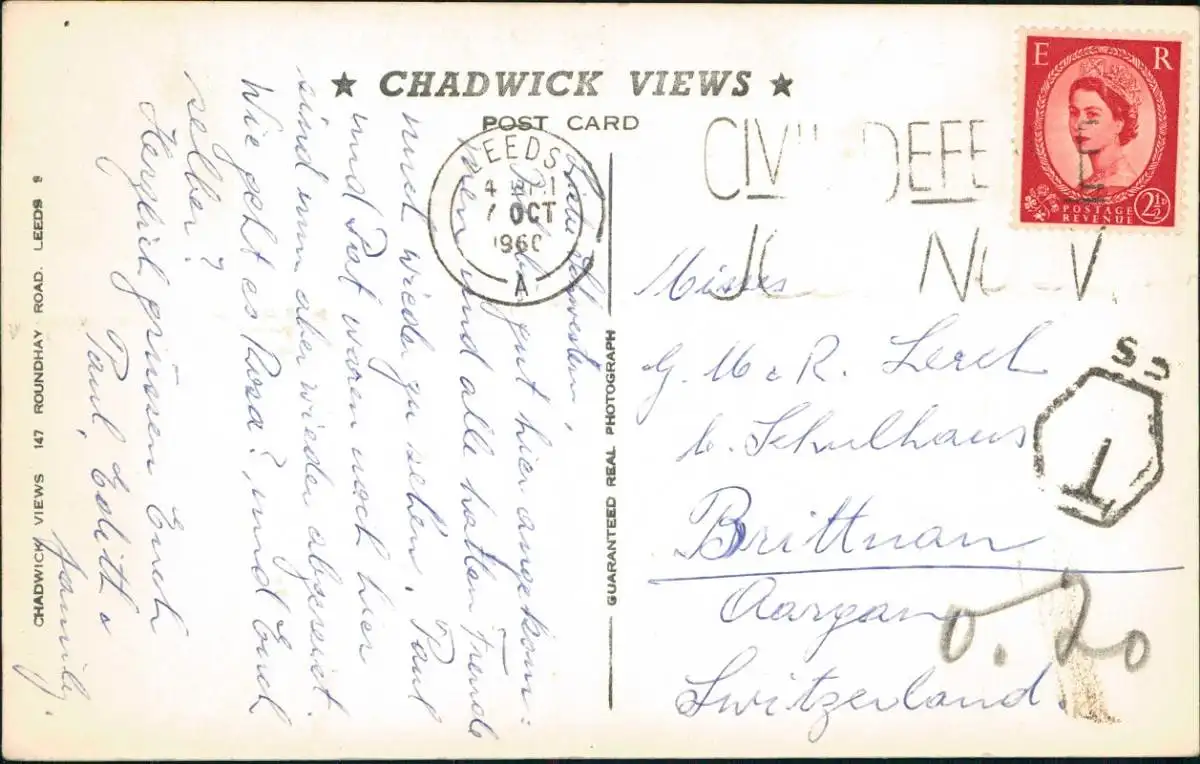 ★ CHADWICK VIEWS ★
POST CARD
CHADWICK VIEWS 147 ROUNDHAY ROAD. LEEDS 9
GUARANTEED REAL PHOTOGRAPH
Liebe Schwestern,
gut hier angekom=
men und alle hatten Freude
uns wieder zu sehen. Paul
und Pat waren nach hier
sind nun aber wieder abgereist.
Wie geht es Rosa?, und Euch
selber?
Herzlich grüssen Euch
Paul, Edith &
Family.
LEEDS
7 OCT
1960
A
CIVIL DEFE E
E R
POSTAGE
REVENUE
2½D
Misses
G. M & R. Lerch
b. Schulhaus
Brittnau
Aargau
Switzerland.
T
0.20